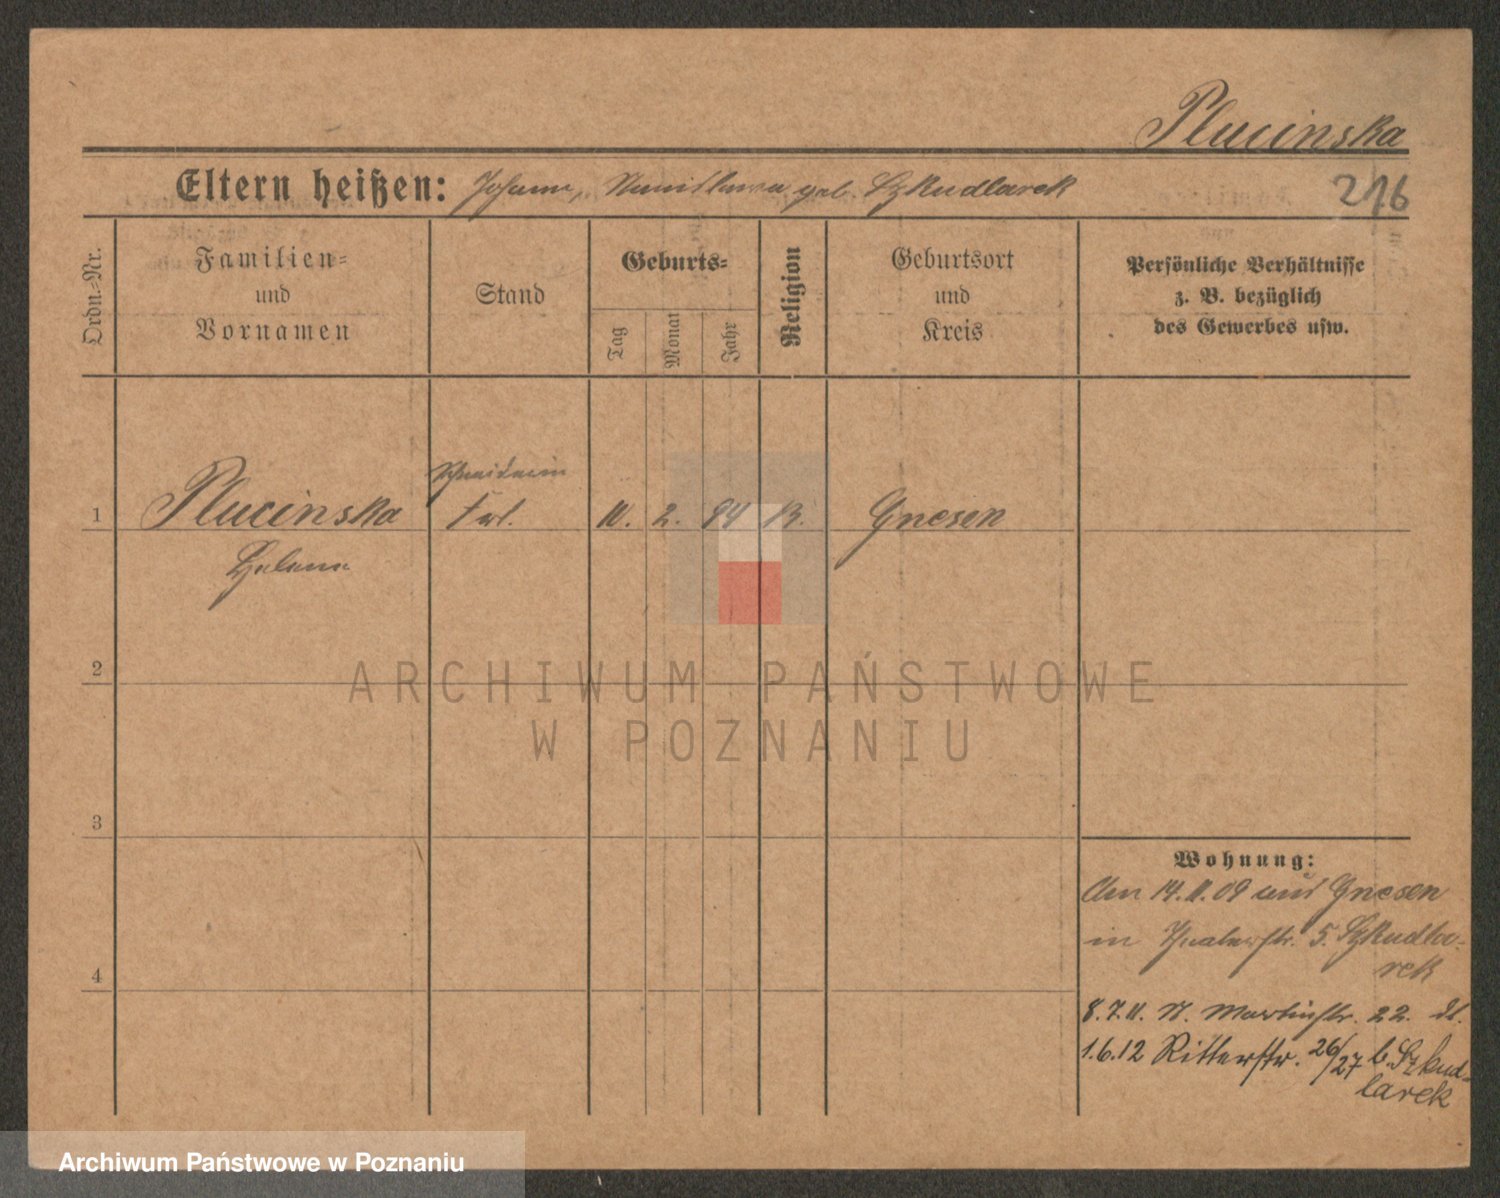 Plucinska
Eltern heißen: Johann, Stanislawa geb. Szkudlarek
216
Ordn.-Nr.
Familien-
und
Vornamen
Stand
Geburts-
Tag
Monat
Jahr
Religion
Geburtsort
und
Kreis
Persönliche Verhältnisse
z. B. bezüglich
des Gewerbes usw.
Schneiderin
1 Plucinska Frl. 11. 2. 84 Gnesen
Helena
2
3
4
Wohnung:
Am 14.11.09 aus Gnesen
in 5. Szkudla-
rek
8.7.11. St. Martinstr. 22. dt.
1.6.12 Ritterstr. 26/27 b. Szkud-
larek
ARCHIWUM PAŃSTWOWE
W POZNANIU
Archiwum Państwowe w Poznaniu